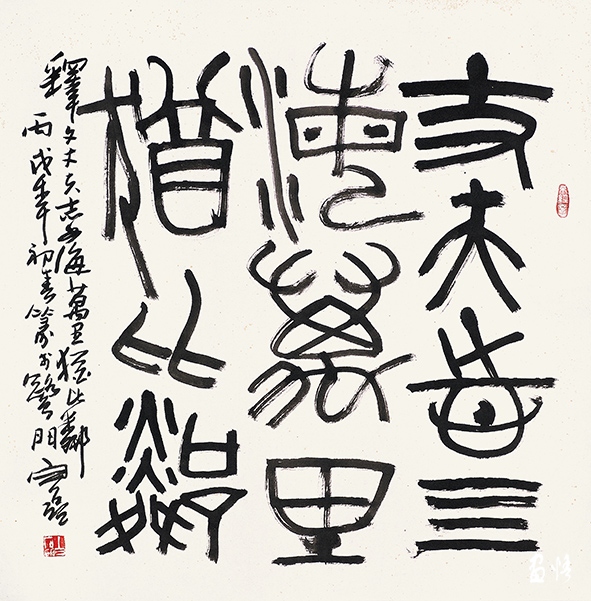 丈夫志亖
海萬里
猶比鄰
釋文丈夫志四海萬里猶比鄰
丙戌年初春篆於鷺門